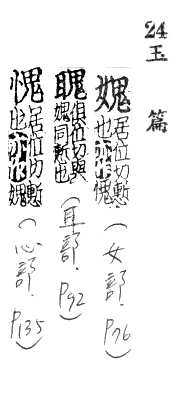 24
玉篇
媿居位切慙也亦作愧(女部.P76)
聭俱位切與媿同慙也(耳部.P92)
愧居位切慙也亦作媿(心部.P135)